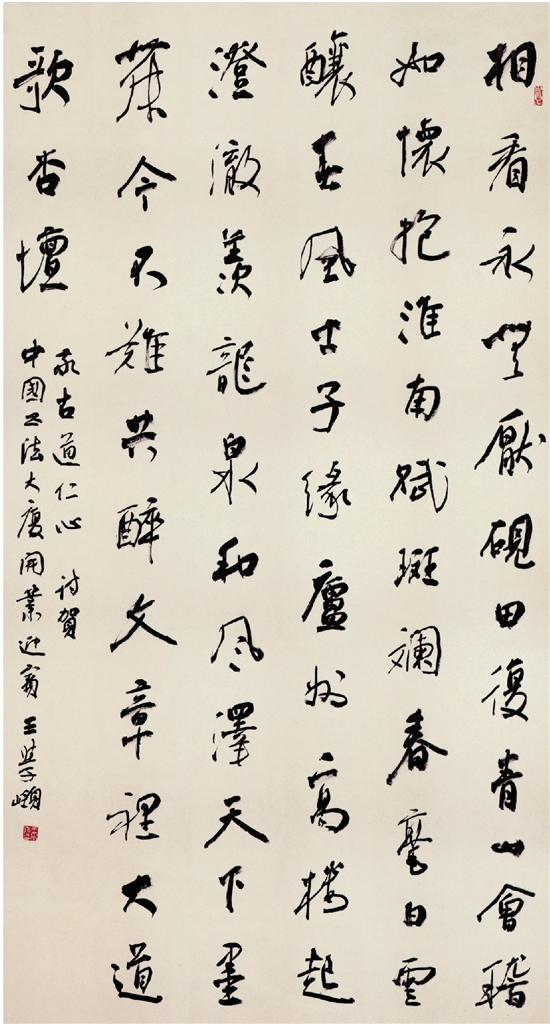 相看永無厭硯田復青山會稽
如懷抱淮南賦斑斕春毫白雲
釀風子緣廬州高樓起
澄澈羨龍泉和風澤天下墨
舞今不難共醉文章裡大道
歌杏壇
承古道仁心 詩賀
中國书法大廈開業迎賓 王學嶺